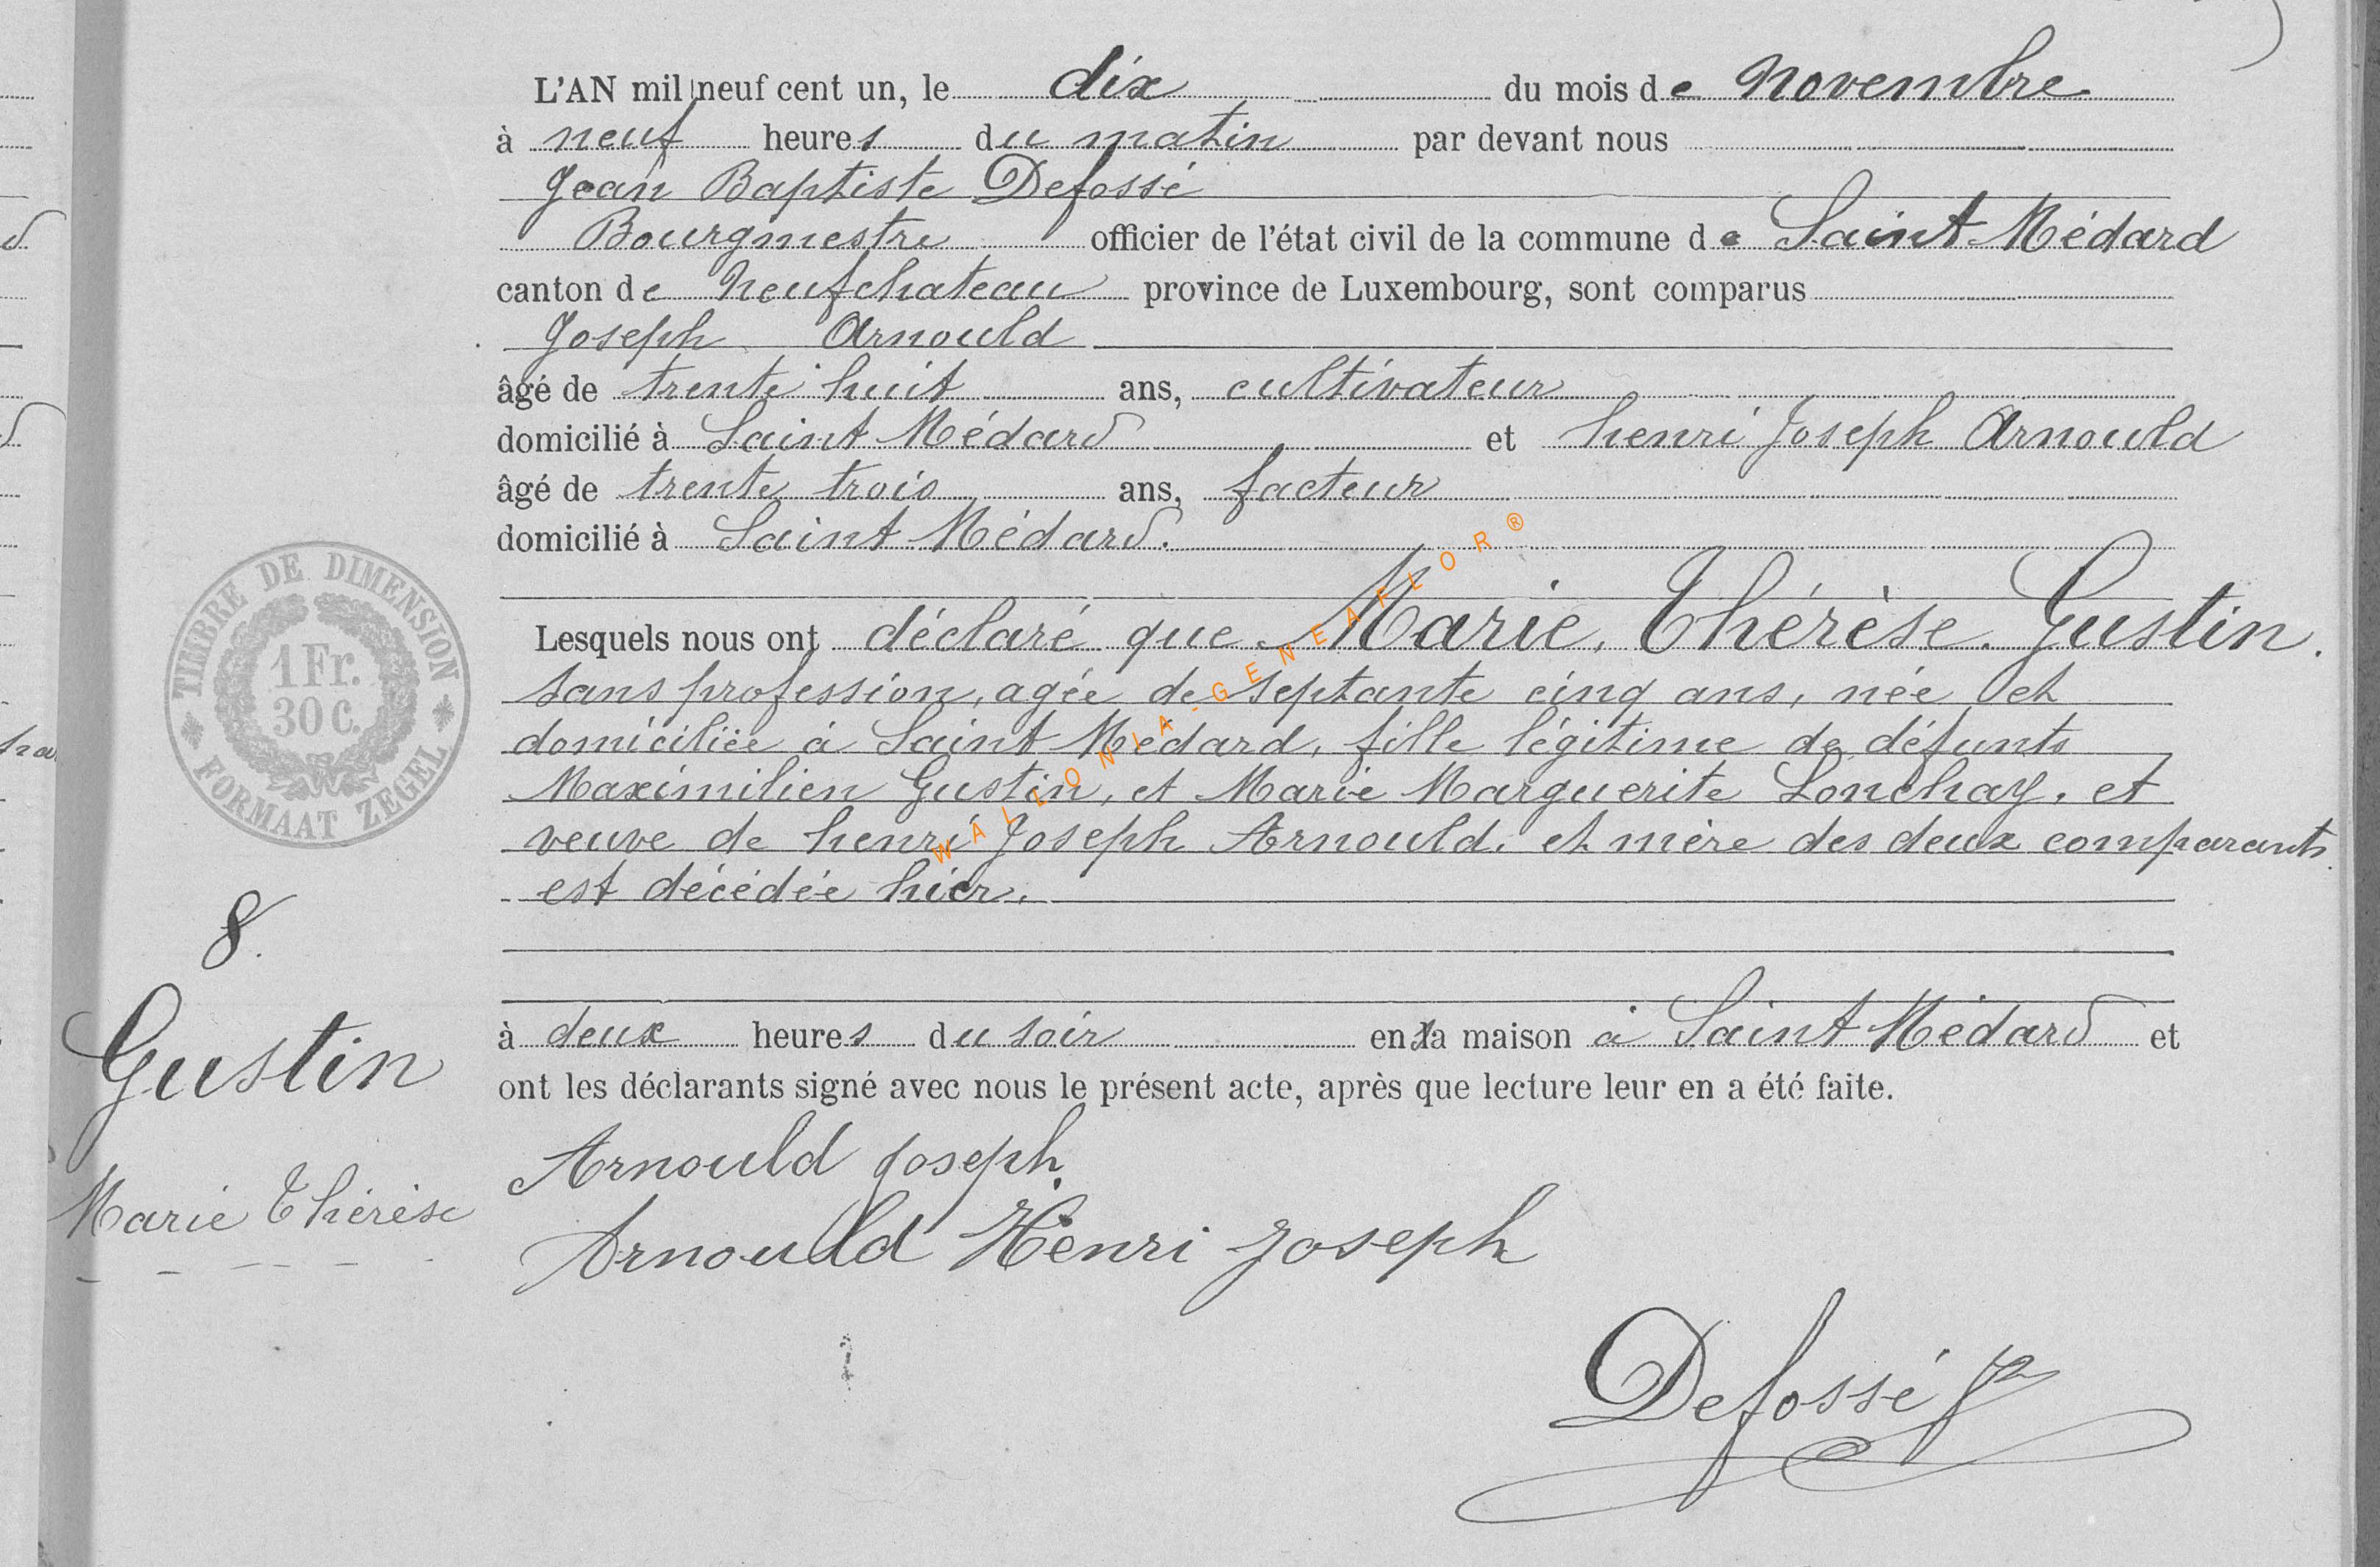 L'AN mil neuf cent un, le dix du mois de Novembre
à neuf heures du matin par devant nous
Jean Baptiste Defossé
Bourgmestre officier de l'état civil de la commune de Saint Médard
canton de Neufchateau province de Luxembourg, sont comparus
Joseph Arnould
âgé de trente huit ans, cultivateur
domicilié à Saint Médard et henri Joseph Arnould
âgé de trente trois ans, facteur
domicilié à Saint Médard.
Lesquels nous ont déclaré que Marie, Thérèse. Gustin.
sans profession, agée de septante cinq ans, née et
domiciliée à Saint Médard, fille légitime de défunts
Maximilien Gustin, et Marie Marguerite Lonchay, et
veuve de henri Joseph Arnould, et mère des deux comparants.
est décédée hier.
à deux heures du soir en sa maison à Saint Médard et
ont les déclarants signé avec nous le présent acte, après que lecture leur en a été faite.
Arnould Joseph.
Arnould Henri Joseph
Defossé
8.
Gustin
Marie Thérèse
TIMBRE DE DIMENSION
1 Fr.
30 C.
FORMAAT ZEGEL
WALLONIA-GENEAFLOR®